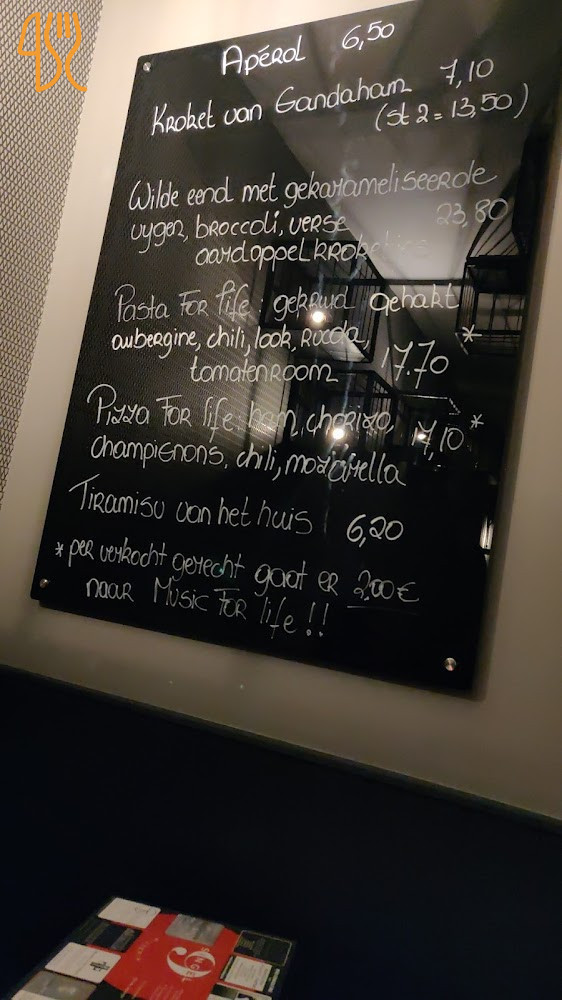 Apérol 6,50
Kroket van Gandaham 7,10
(st 2 = 13,50)
Wilde eend met gekarameliseerde
vygen, broccoli, verse 23,80
aardappelkroketjes
Pasta For life: gekruid gehakt
aubergine, chili, look, rucola, *
tomatenroom 17.70
Pizza For life: ham, chorizo, *
champignons, chili, mozarella
Tiramisu van het huis 6,20
* per verkocht gerecht gaat er 2,00€
naar Music For life!!